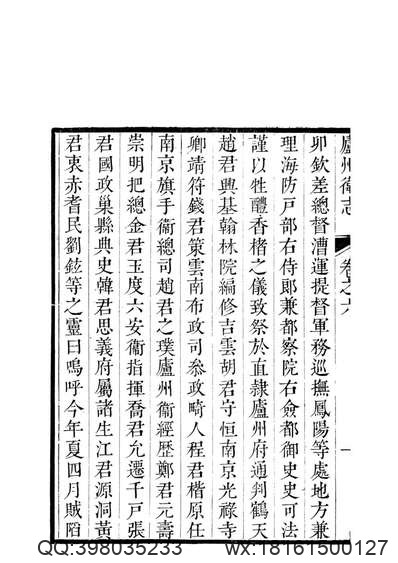 廬州衞志 卷之六 一
卯欽差總督漕運提督軍務巡撫鳳陽等處地方兼
理海防戸部右侍郞兼都察院右僉都御史史可法
謹以牲醴香楮之儀致祭於直隷廬州府通判鶴天
趙君興基翰林院編修吉雲胡君守恒南京光祿寺
卿靖符錢君策雲南布政司叅政畸人程君楷原任
南京旗手衞總司趙君之璞廬州衞經歷鄭君元壽
崇明把總金君玉度六安衞指揮喬君允遷千戸張
君國政巢縣典史韓君思義府屬諸生江君源洞黃
君衷赤耆民劉鉉等之靈曰嗚呼今年夏四月賊陷
QQ:398035233 wx:18161500127